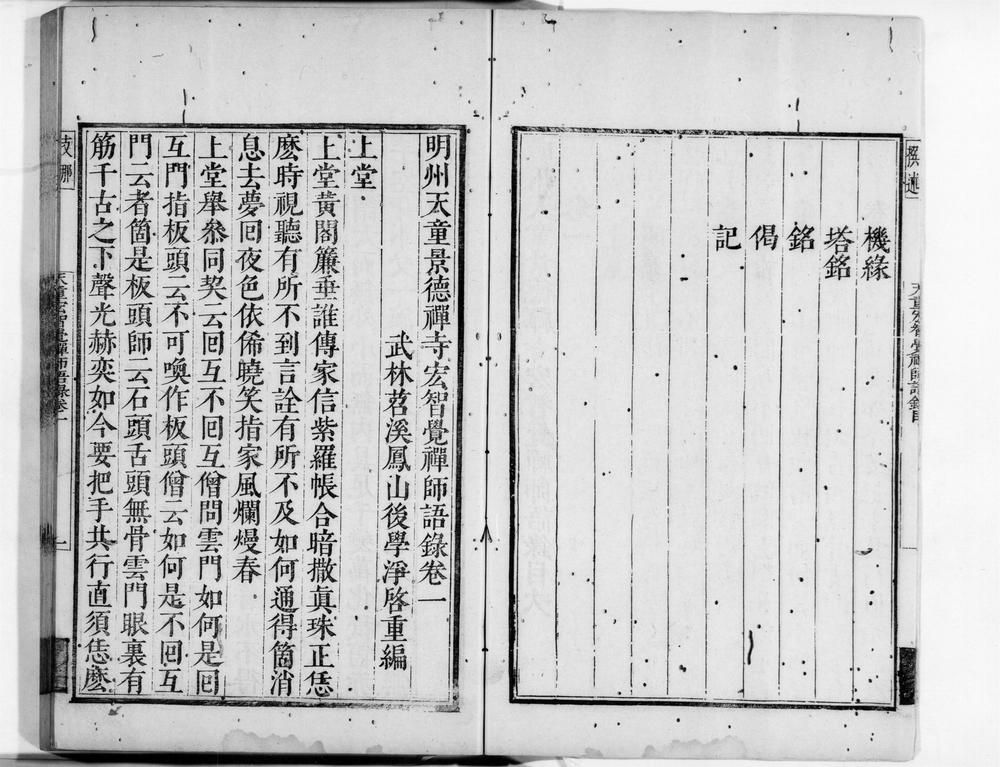 機緣
塔銘
銘
偈
記
明州天童景德禪寺宏智覺禪師語錄卷一
武林苕溪鳳山後學淨啓重編
上堂
上堂黃閣簾垂誰傳家信紫羅帳合暗撒真珠正恁
麽時視聽有所不到言詮有所不及如何通得箇消
息去夢回夜色依俙曉笑指家風爛熳春
上堂舉參同契云回互不回互僧問雲門如何是回
互門指板頭云不可喚作板頭僧云如何是不回互
門云者箇是板頭師云石頭舌頭無骨雲門眼裏有
筋千古之下聲光赫奕如今要把手共行直須恁麽